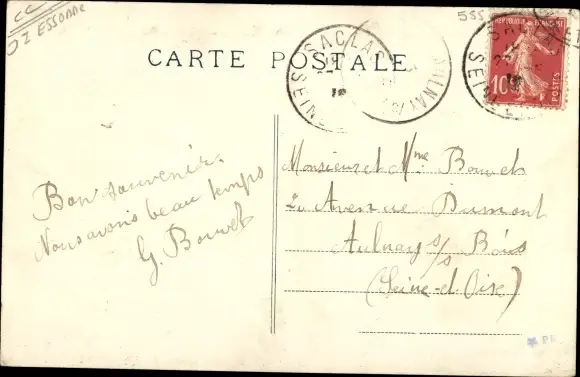 ESSONNE
555
CARTE POSTALE
SACLAS
SEINE
AULNAY
REPUBLIQUE FRANÇAISE
10
POSTES
Bon souvenir.
Nous avons beau temps
G. Bouvet
Monsieur et Mme Bouvet
20 Avenue Dumont
Aulnay s/s Bois
(Seine-et-Oise)